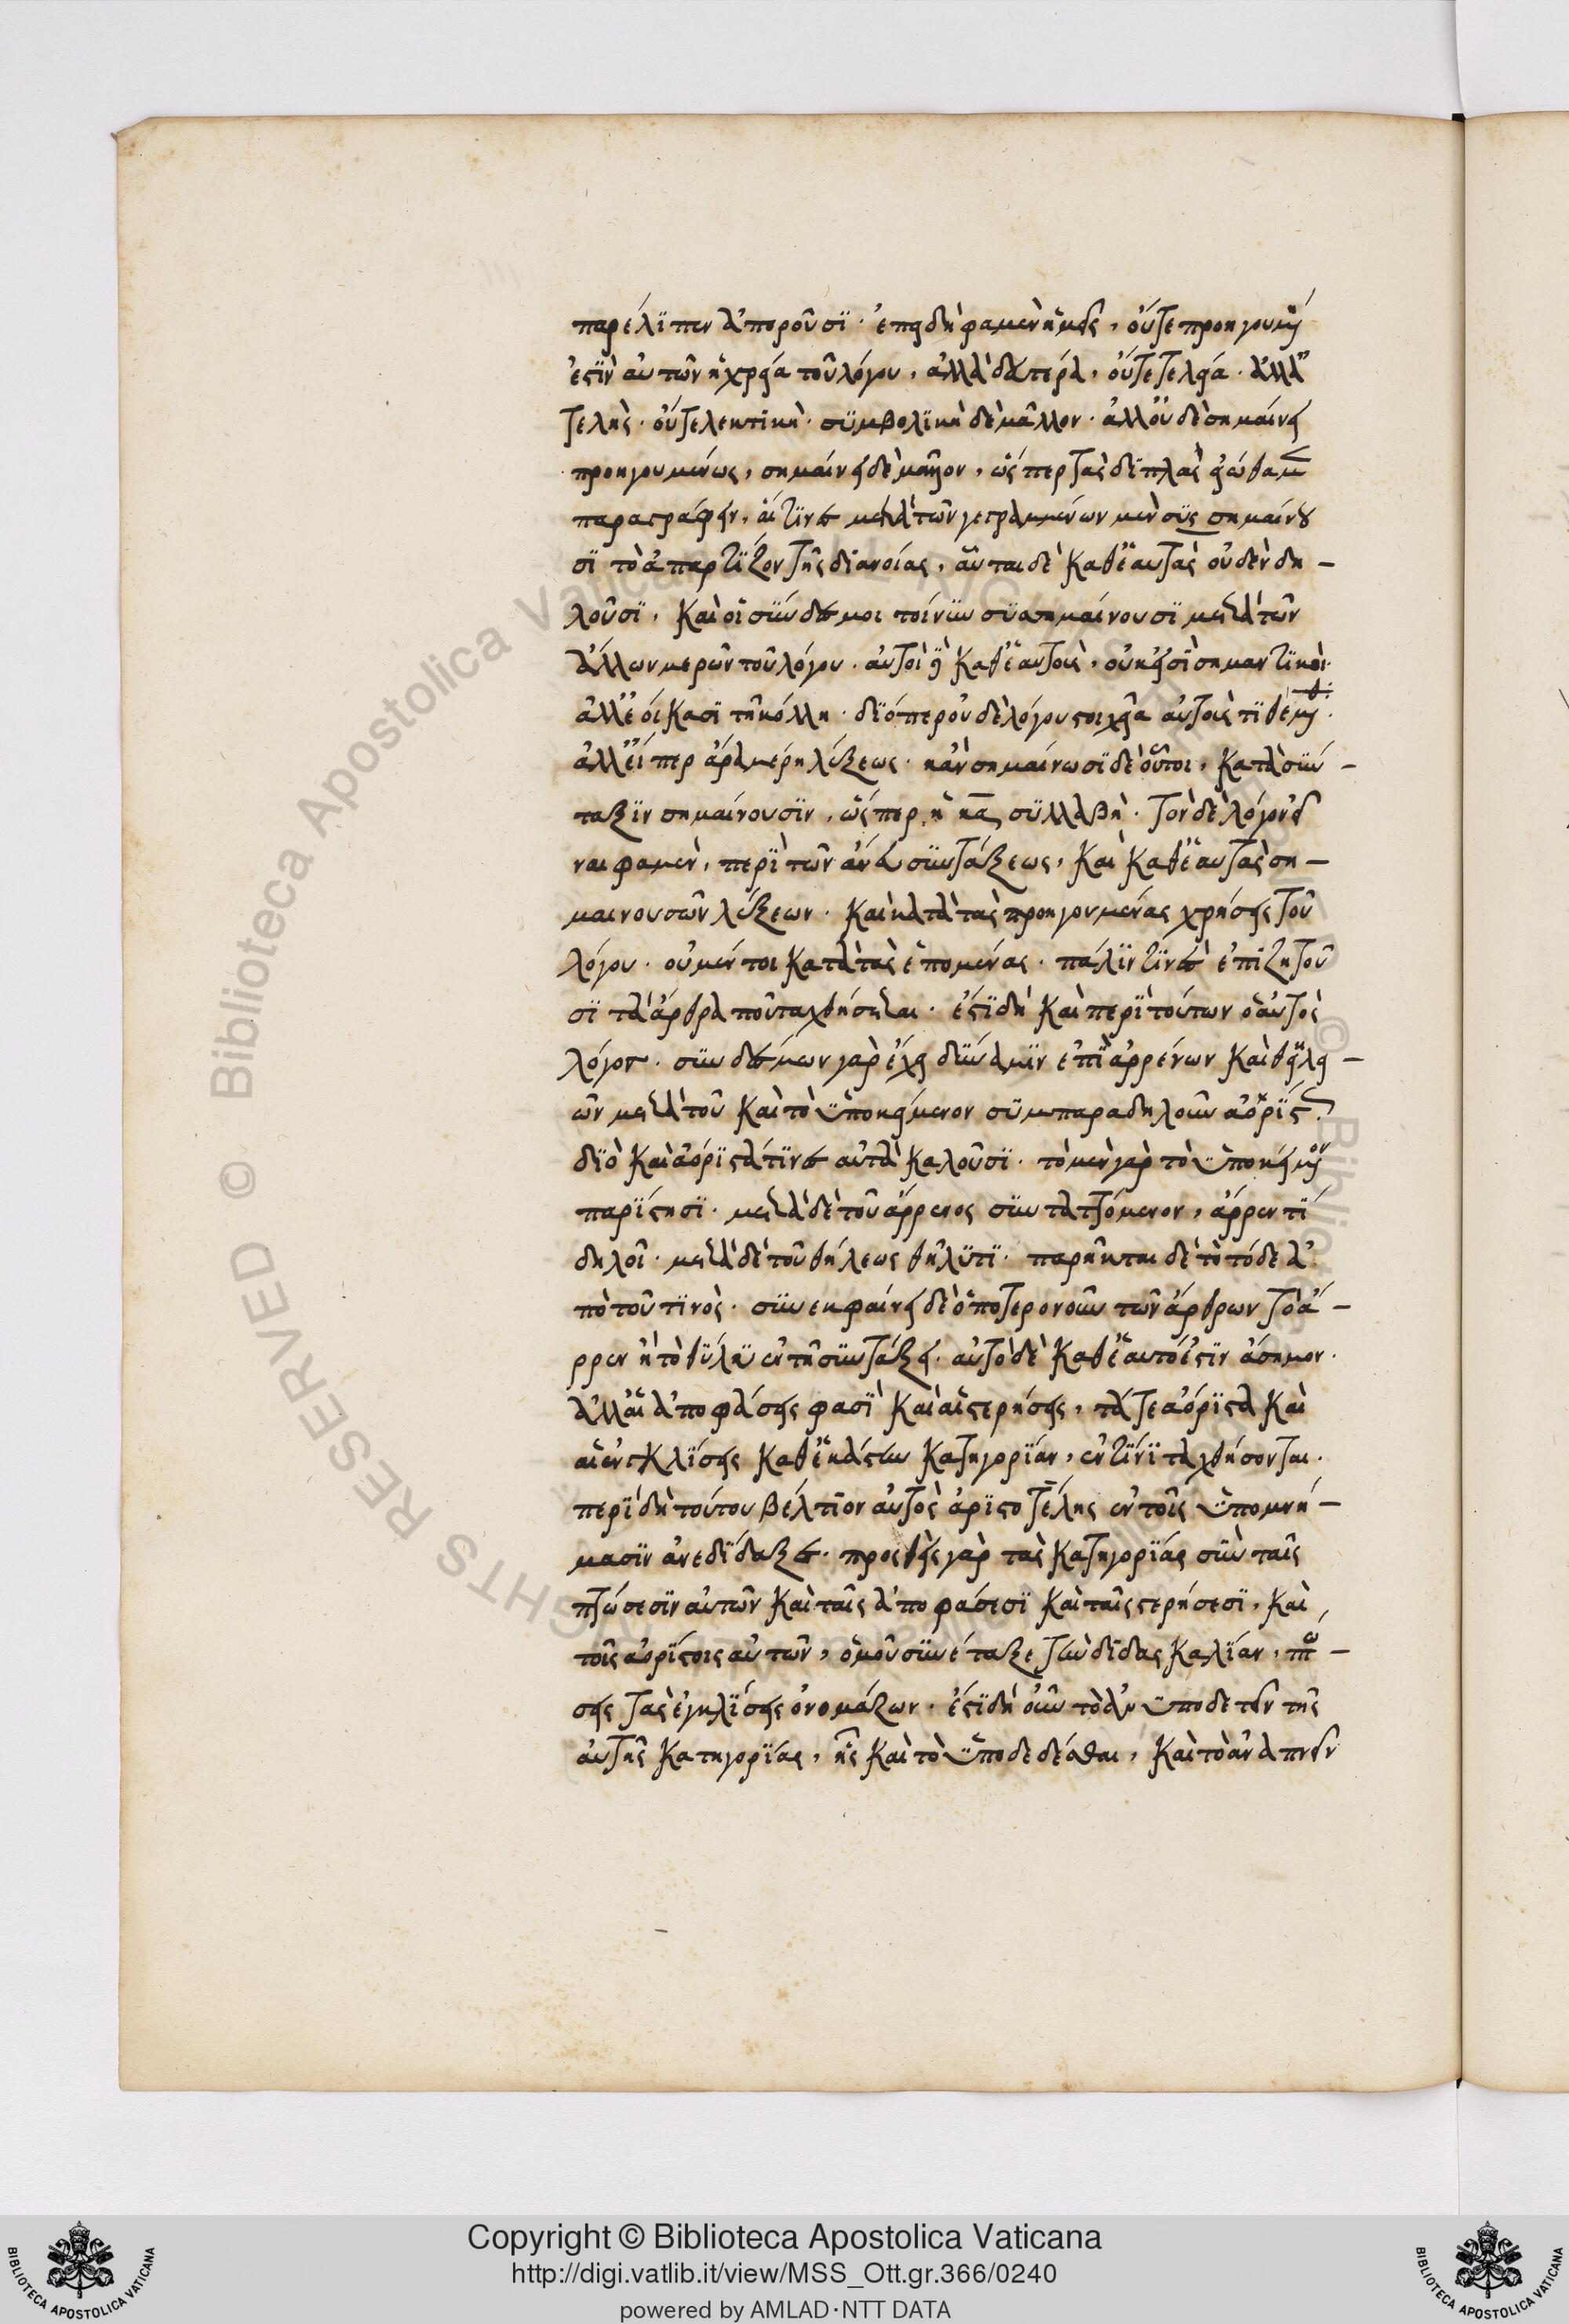 παρέλϊπεν ἀποροῦσϊ. ἐπειδὴ φαμὲν ἡμεῖς, οὔτε προηγουμ
ἐστϊν αὐτῶν ἡ χρεία τοῦ λόγου, ἀλλὰ δευτέρα, οὔτε τελεία. ἀλλ'
τελὴς. οὔτε λεκτϊκὴ. συμβολϊκὴ δὲ μᾶλλον. ἀλλ' οὐδὲ σημαίνει
προηγουμένως, σημαίνει δὲ μᾶλλον, ὥσπερ τὰς δϊπλᾶς εἰώθαμ
παραγράφειν, αἵ τϊνες μετὰ τῶν γεγραμμένων μὲν συσσημαίνου
σϊ τὸ ἀπαρτϊζον τῆς δϊανοίας, αὗται δὲ καθ' ἑαυτὰς οὐδὲν δη -
λοῦσϊ, καὶ οἱ σύνδεσμοι τοίνυν συσσημαίνουσϊ μετὰ τῶν
ἄλλων μερῶν τοῦ λόγου. αὐτοὶ δὲ καθ' ἑαυτοὺς, οὐκ εἰσϊ σημαντϊκοὶ.
ἀλλ' ἐοίκασϊ τῇ κόλλῃ. δϊόπερ οὐδὲ λόγου στοιχεῖα αὐτοὺς τϊθέμ.
ἀλλ' εἴπερ ἄρα μέρη λέξεως. κἂν σημαίνωσϊ δὲ οὗτοι, κατὰ σύν -
ταξϊν σημαίνουσϊν, ὥσπερ ἡ κα συλλαβὴ. τὸν δὲ λόγον εἶ
ναι φαμὲν, περὶ τῶν ἄνευ συντάξεως, καὶ καθ' ἑαυτὰς ση -
μαινουσῶν λέξεων. καὶ κατὰ τὰς προηγουμένας χρήσεις τοῦ
λόγου. οὐ μέντοι κατὰ τὰς ἑπομένας. πάλϊν τϊνὲς ἐπϊζητοῦ
σϊ τὰ ἄρθρα ποῦ ταχθήσεται. ἔστϊ δὴ καὶ περὶ τούτων ὁ αὐτὸς
λόγος. συνδέσμων γὰρ ἔχει δύναμϊν ἐπϊ ἀρρένων καὶ θηλει -
ῶν μετὰ τοῦ καὶ τὸ ὑποκείμενον συμπαραδηλοῦν ἀορϊστ
δϊὸ καὶ ἀόρϊστά τϊνες αὐτὰ καλοῦσϊ. τὸ μὲν γὰρ τὸ ὑποκείμον
παρϊστησϊ. μετὰ δὲ τοῦ ἄρρενος συνταττόμενον, ἄρρεν τϊ
δηλοῖ. μετὰ δὲ τοῦ θήλεως θῆλύ τϊ. παρῆκται δὲ τὸ τόδε ἀ
πὸ τοῦ τϊνὸς. συνεκφαίνει δὲ ὁπότερον οὖν τῶν ἄρθρων τὸ ἄ -
ρρεν ἢ τὸ θῆλυ ἐν τῇ συντάξει. αὐτὸ δὲ καθ' ἑαυτό ἐστϊν ἄσημον.
ἀλλ' αἱ ἀποφάσεις φασὶ καὶ αἱ στερήσεις, τά τε ἀόρϊστα καὶ
αἱ ἐγκλϊσεις καθ' ἑκάστην κατηγορϊαν, ἐν τϊνϊ ταχθήσονται.
περὶ δὴ τούτου βέλτϊον αὐτὸς ἀρϊστοτέλης ἐν τοῖς ὑπομνή -
μασϊν ἀνεδϊδαξε. προσθεὶς γὰρ τὰς κατηγορϊας σὺν ταῖς
πτώσεσϊν αὐτῶν καὶ ταῖς ἀποφάσεσϊ καὶ ταῖς στερήσεσϊ, καὶ
τοῖς ἀορϊστοις αὐτῶν, ὁμοῦ συνέταξε τὴν δϊδασκαλϊαν, πτώ -
σεις τὰς ἐγκλϊσεις ὀνομάζων. ἔστϊ δὴ οὖν τὸ ἀνυποδετεῖν τῆς
αὐτῆς κατηγορϊας, ἧς καὶ τὸ ὑποδεδέσθαι, καὶ τὸ ἀναπνεῖν
Copyright © Biblioteca Apostolica Vaticana
http://digi.vatlib.it/view/MSS_Ott.gr.366/0240
powered by AMLAD·NTT DATA